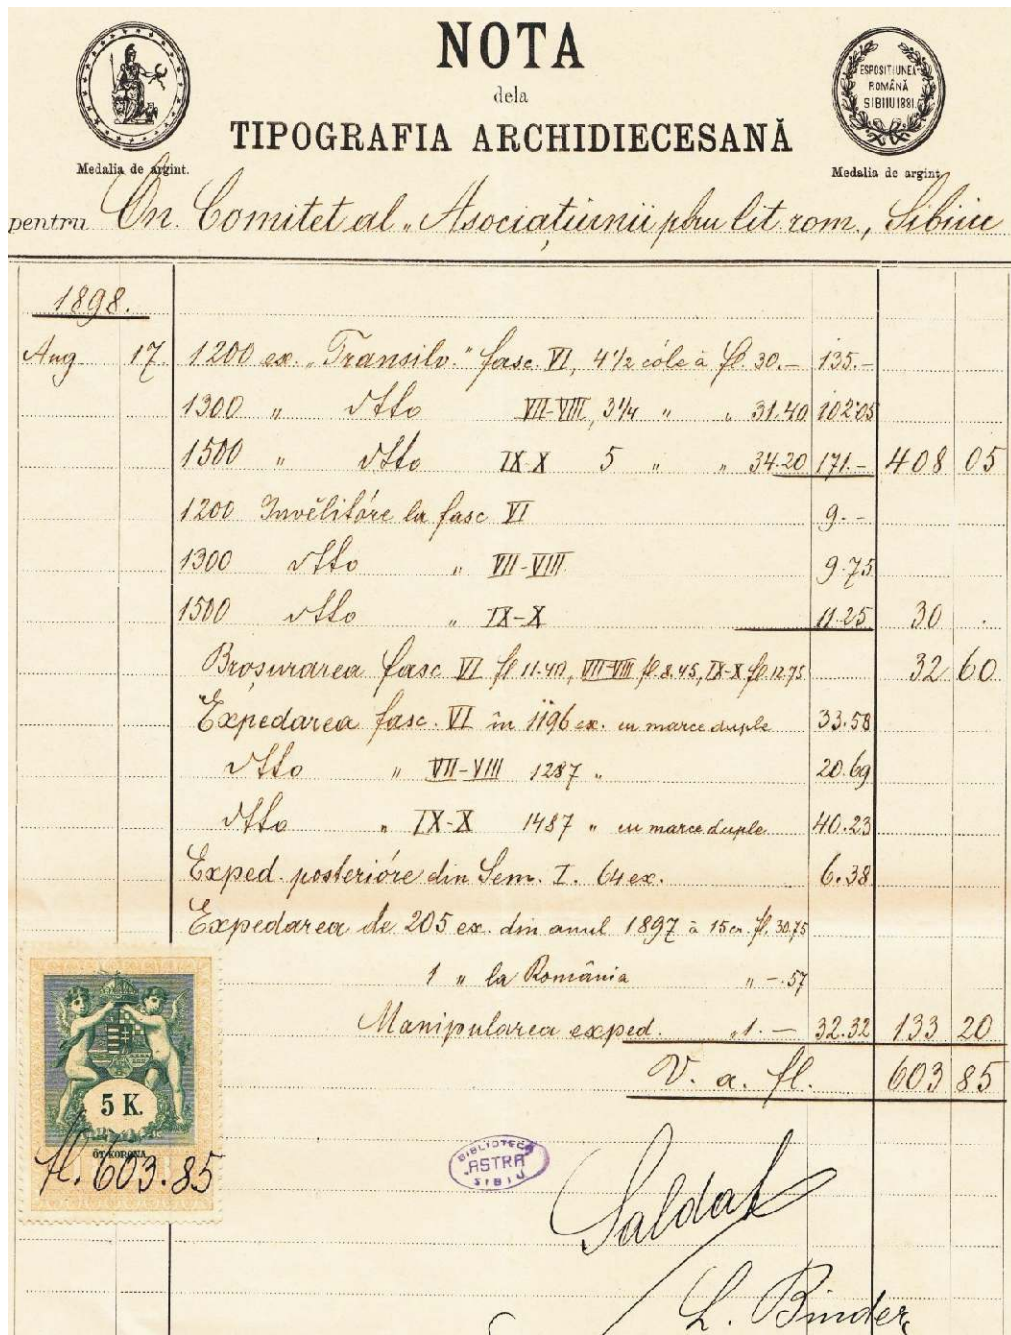 NOTA
dela
TIPOGRAFIA ARCHIDIECESANĂ
Medalia de argint.
ESPOSITIUNEA
ROMÂNĂ
SIBIIU 1881
Medalia de argint.
pentru On. Comitet al „Asociațiunii ptru lit. rom., Sibiiu
1898.
Aug 17 1200 ex. „Transilv." fasc. VI, 4 1/2 cóle à fl. 30.— 135.—
1300 " dtto VII-VIII, 3 1/4 " " 31.40 102.05
1500 " dtto IX-X 5 " " 34.20 171.— 408 05
1200 Învĕlitóre la fasc VI 9.—
1300 dtto " VII-VIII 9.75
1500 dtto " IX-X 11.25 30 .
Broșurarea fasc VI fl 11.40, VII-VIII fl. 8.45, IX-X fl. 12.75 32 60
Expedarea fasc. VI în 1196 ex. cu marce duple 33.58
dtto " VII-VIII 1287 " 20.69
dtto " IX-X 1487 " cu marce duple 40.23
Exped. posterióre din Sem. I. 64 ex. 6.38
Expedarea de 205 ex. din anul 1897 à 15 cr. fl. 30.75
1 " la România " —.57
Manipularea exped. " 1.— 32.32 133 20
V. a. fl. 603 85
5 K.
ÖT KORONA
fl. 603.85
BIBLIOTECA
"ASTRA"
SIBIU
Saldat
L. Binder